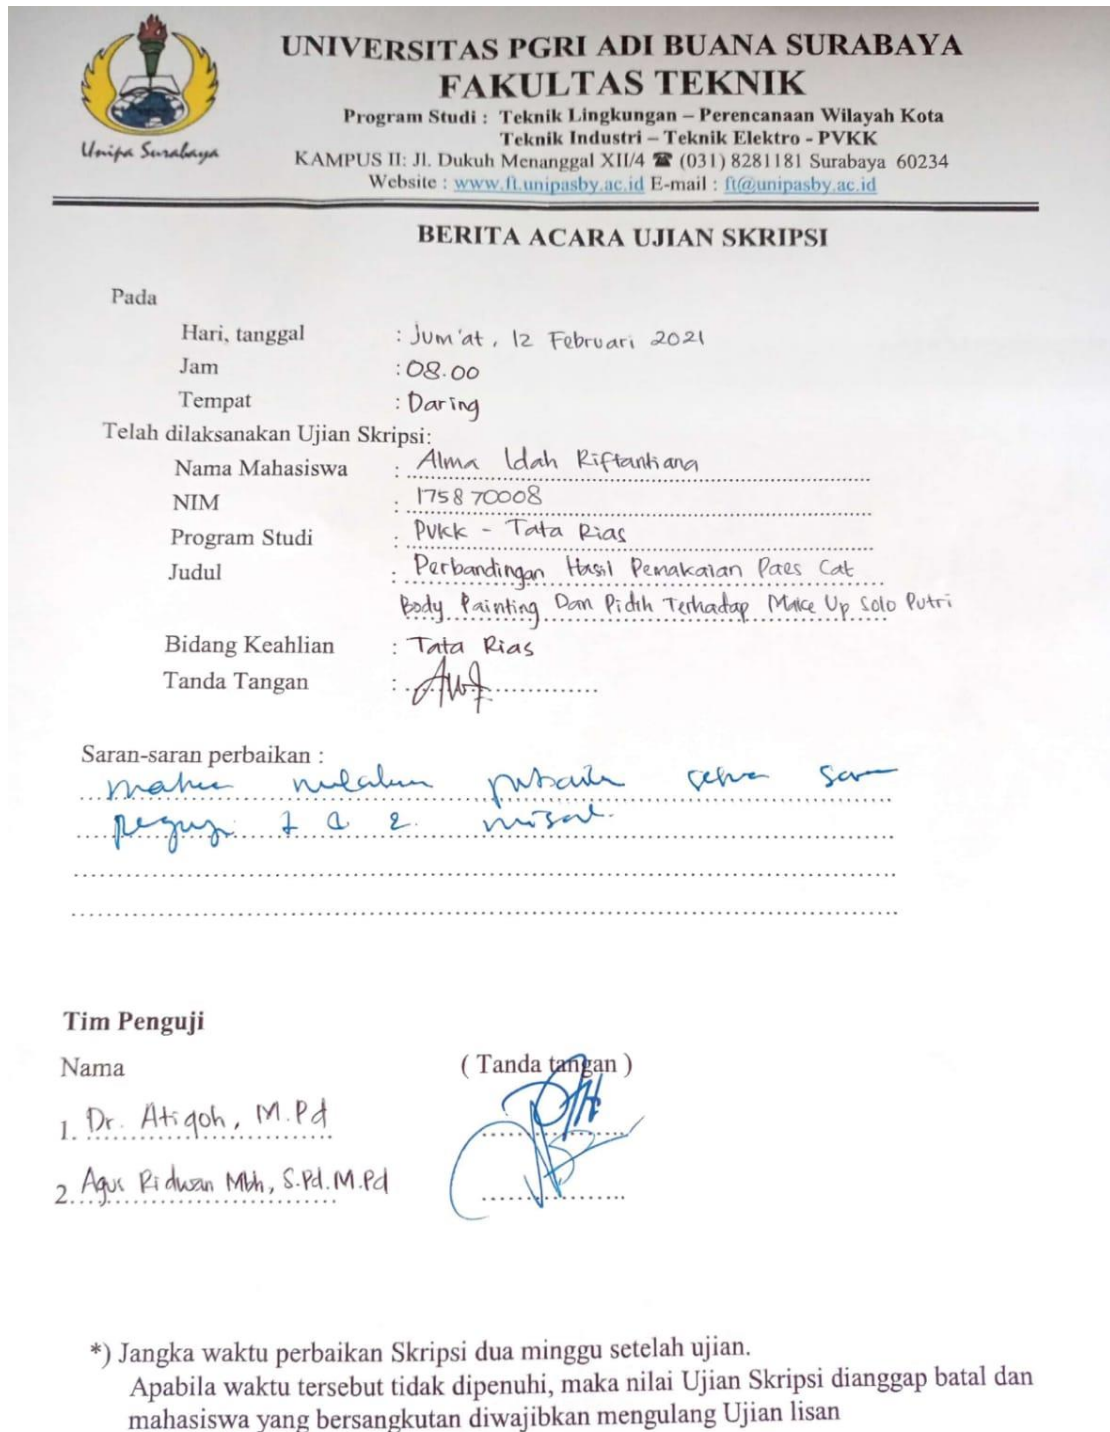 UNIVERSITAS PGRI ADI BUANA SURABAYA
FAKULTAS TEKNIK
Program Studi : Teknik Lingkungan – Perencanaan Wilayah Kota
Teknik Industri – Teknik Elektro - PVKK
KAMPUS II: Jl. Dukuh Menanggal XII/4 ☎ (031) 8281181 Surabaya 60234
Website : www.ft.unipasby.ac.id E-mail : ft@unipasby.ac.id
Unipa Surabaya
BERITA ACARA UJIAN SKRIPSI
Pada
Hari, tanggal : Jum'at, 12 Februari 2021
Jam : 08.00
Tempat : Daring
Telah dilaksanakan Ujian Skripsi:
Nama Mahasiswa : Alma Idah Riftantiana
NIM : 175870008
Program Studi : PVKK - Tata Rias
Judul : Perbandingan Hasil Pemakaian Paes Cat
Body Painting Dan Pidih Terhadap Make Up Solo Putri
Bidang Keahlian : Tata Rias
Tanda Tangan :
Saran-saran perbaikan :
Tim Penguji
Nama ( Tanda tangan )
1. Dr. Atiqoh, M.Pd
2. Agus Ridwan Mbh, S.Pd.M.Pd
*) Jangka waktu perbaikan Skripsi dua minggu setelah ujian.
Apabila waktu tersebut tidak dipenuhi, maka nilai Ujian Skripsi dianggap batal dan
mahasiswa yang bersangkutan diwajibkan mengulang Ujian lisan